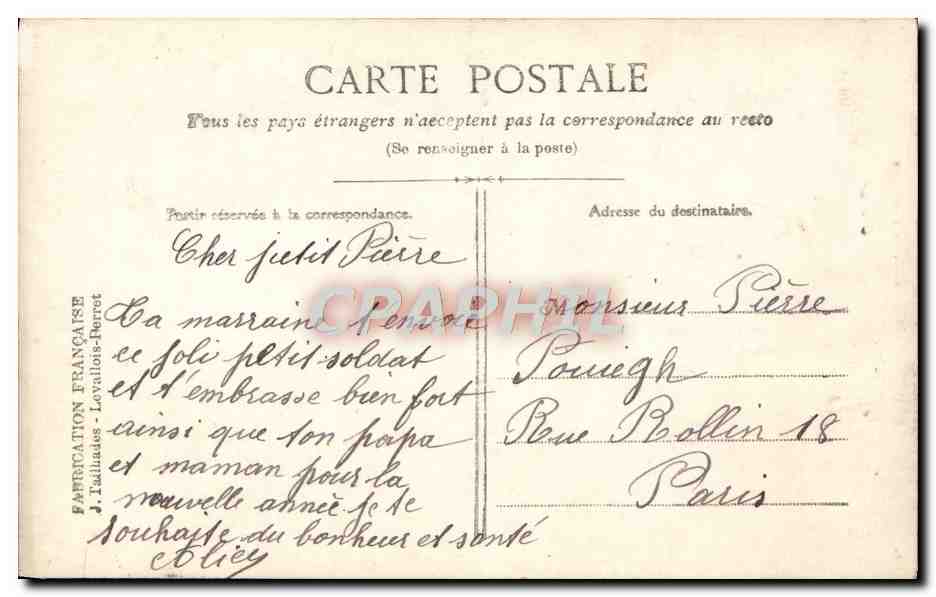 CARTE POSTALE
Tous les pays étrangers n'acceptent pas la correspondance au recto
(Se renseigner à la poste)
Partie réservée à la correspondance.
Adresse du destinataire.
Cher petit Pièrre
Ta marraine t'envoie
ce joli petit soldat
et t'embrasse bien fort
ainsi que ton papa
et maman pour la
nouvelle année je te
souhaite du bonheur et santé
Monsieur Pièrre
Rue Rollin 18
Paris
FABRICATION FRANÇAISE
J. Tailhades - Levallois-Perret
CPAPHIL